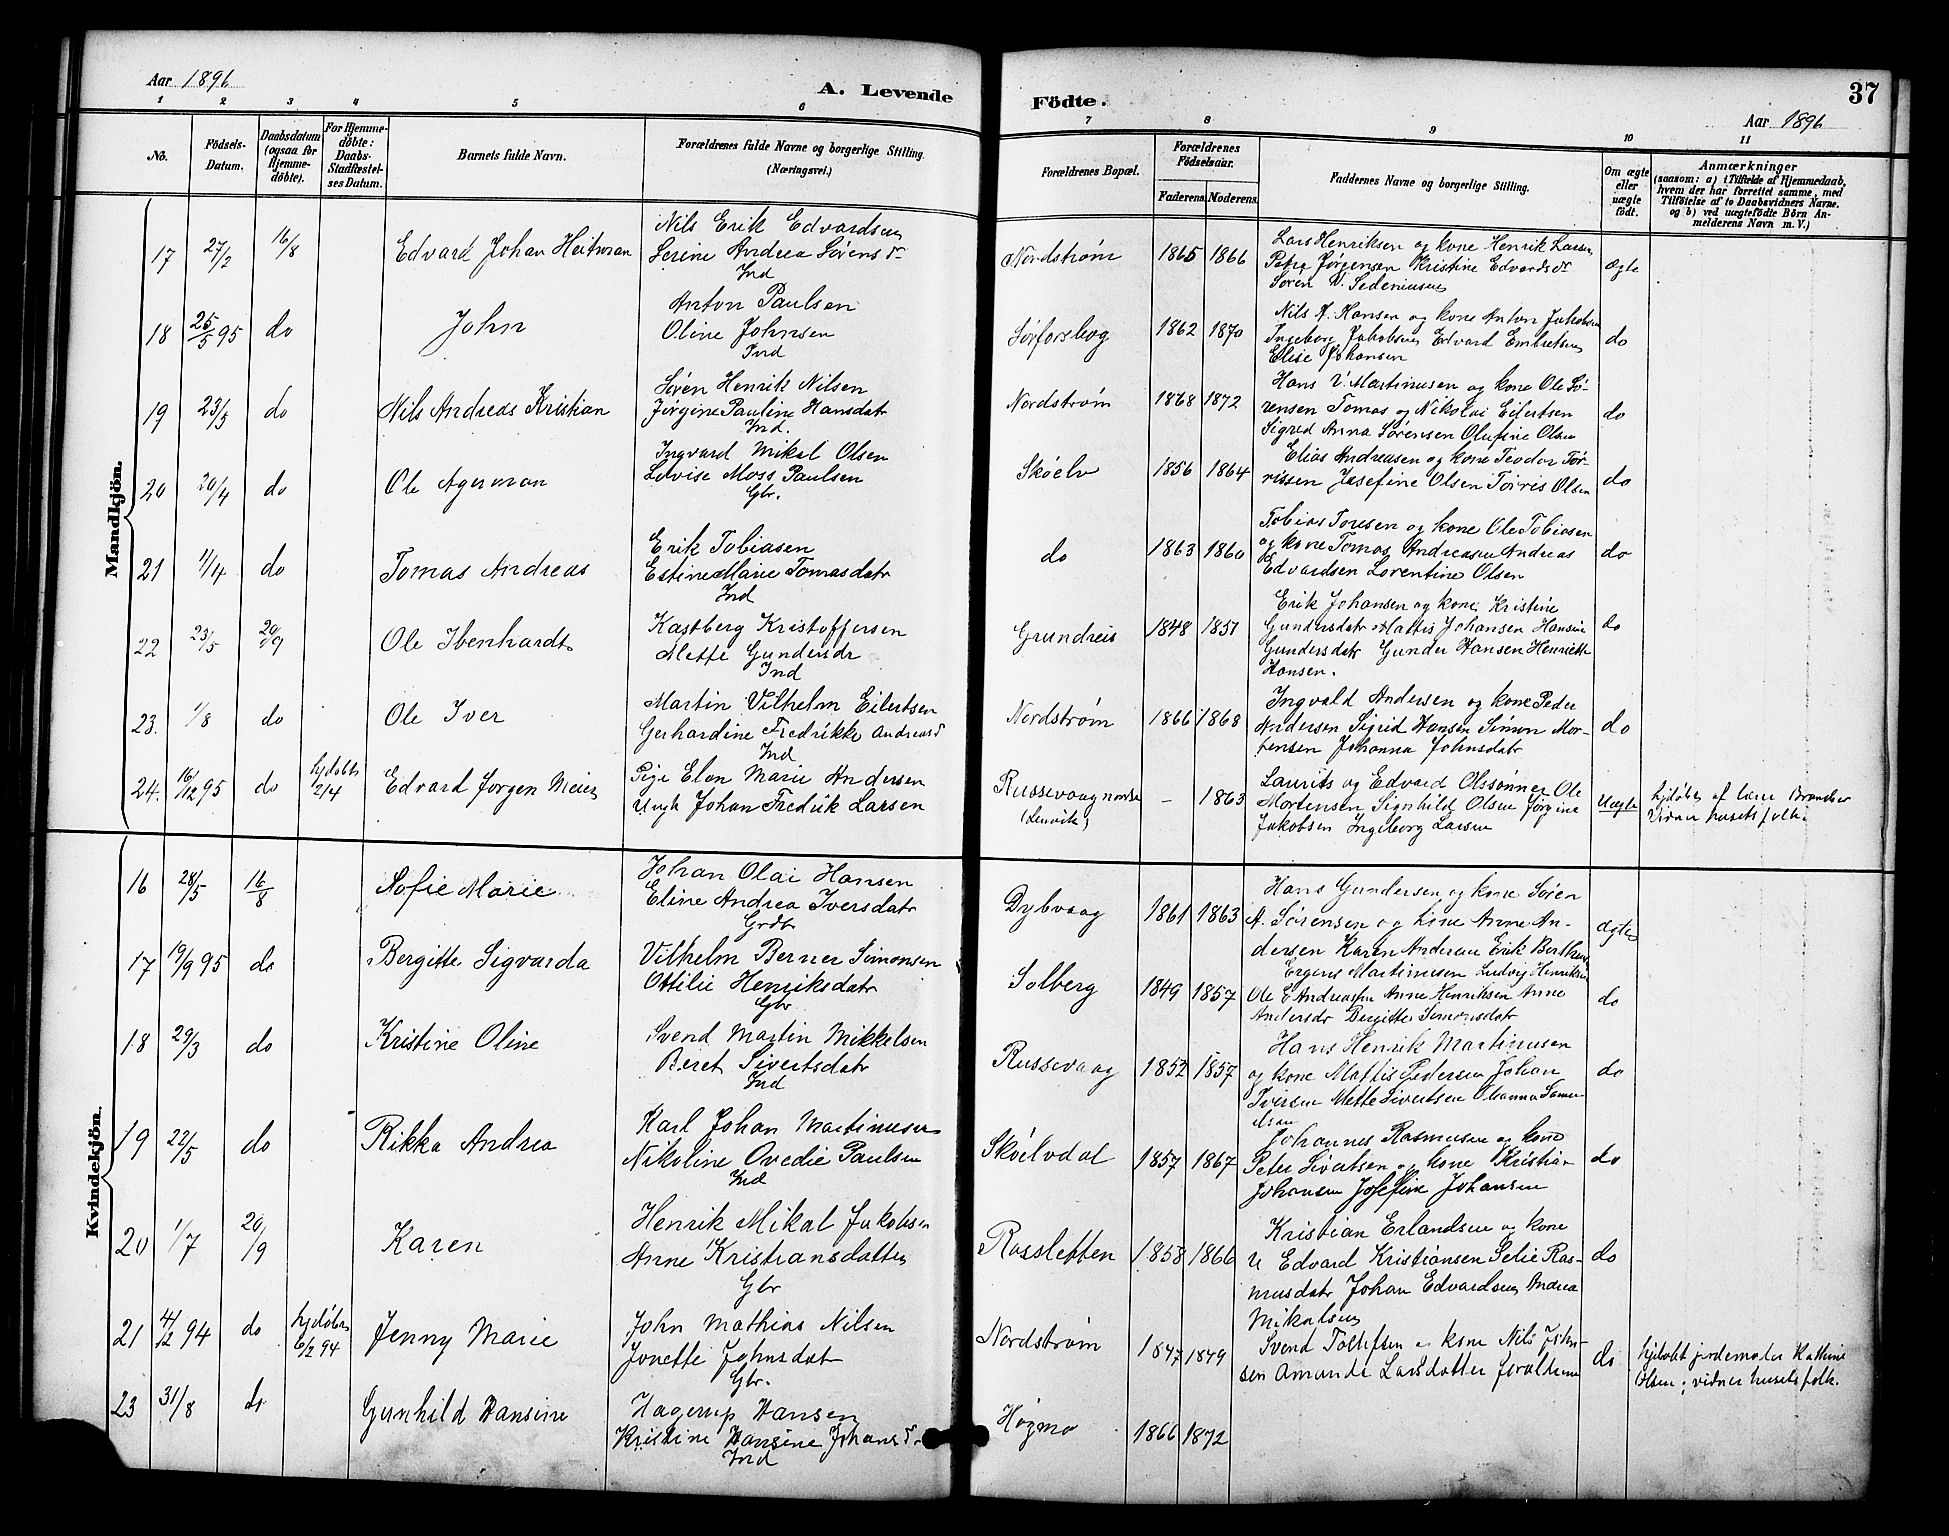 Aar 1896
A. Levende
Födte.
37
Aar 1896
1 2 3 4 5 6 7 8 9 10 11
No.
Födsels-
Datum.
Daabsdatum
(ogsaa for
Hjemme-
döbte).
For Hjemme-
döbte:
Daabs-
Stadfæstel-
ses Datum.
Barnets fulde Navn.
Forældrenes fulde Navne og borgerlige Stilling.
(Næringsvei.)
Forældrenes Bopæl.
Forældrenes
Födselsaar.
Faderens. Moderens.
Faddernes Navne og borgerlige Stilling.
Om ægte
eller
uægte
födt.
Anmærkninger
(saasom: a) i Tilfælde af Hjemmedaab,
hvem der har forrettet samme, med
Tilföielse af to Daabsvidners Navne.
og b) ved uægtefödte Börn An-
melderens Navn m. V.)
Mandkjön.
17 27/2 16/8 Edvard Johan Heitman
Nils Erik Edvardsen
Serine Andrea Sørensdr
Ind
Nordstrøm 1865 1866
Lars Henriksen og kone Henrik Larsen
Petra Jørgensen Kristine Edvardsdr
Søren V.
Ægte
18 25/5 95 do John
Anton Paulsen
Oline Johnsen
Ind
Sørforsbog 1862 1870
Nils A. Hansen og kone Anton Jakobsen
Ingeborg Jakobsen Edvard Embretsen
Elise Johansen
do
19 23/5 do Nils Andreas Kristian
Søren Henrik Nilsen
Jørgine Pauline Hansdatr
Ind.
Nordstrøm 1868 1872
Hans V. Martinusen og kone Ole Sø-
rensen Tomas og Nikolai Eilertsen
Sigrid Anna Sørensen Olufine Olsen
do
20 20/4 do Ole Agerman
Ingvard Mikal Olsen
Lovise Moss Paulsen
Gbr.
Skøelv 1856 1864
Elias Andreasen og kone Teodor Tør-
rissen Josefine Olsen Tørris Olsen
do
21 11/4 do Tomas Andreas
Erik Tobiasen
Estine Marie Tomasdatr
Ind
do 1863 1860
Tobias Toresen og kone Ole Tobiasen
og kone Tomas Andreasen Andreas
Edvardsen Lorentine Olsen
do
22 23/5 20/9 Ole Ibenhardt
Kastberg Kristoffersen
Mette Gundersdr
Ind
Grundreis 1848 1851
Erik Johansen og kone Kristine
Gundersdatr Mattis Johansen Hansine
Gundersdatr Gunder Hansen Henriette
Hansen.
do
23. 1/8 do Ole Iver
Martin Vilhelm Eilertsen
Gerhardine Fredrikke Andreasd
Ind
Nordstrøm 1866 1868
Ingvald Andersen og kone Peder
Andersen Sigrid Hansen Simon Mor-
tensen Johanna Johnsdatr
do
24. 16/12 95 do hjdøbt 2/4 Edvard Jørgen Meier
Pige Elen Marie Andersen
Ungk Johan Fredrik Larsen
Russevaag
(Lenvik)
– 1863
Laurits og Edvard Olssønner Ole
Mortensen Signhild Olsen Jørgine
Jakobsen Ingeborg Larsen
Uægte
hjdøbt af lærer
Vidner husets folk.
Kvindekjön.
16 28/5 16/8 Sofie Marie
Johan Olai Hansen
Eline Andrea Iversdatr
Grdbr
Dybvaag 1861 1863
Hans Gundersen og kone Søren
A. Sørensen og kone Anne An-
dersen Karen Andersen Erik
ægte
17 19/9 95 do Bergitte Sigvarda
Vilhelm Berner Simonsen
Ottilie Henriksdatr
Gbr
Solberg 1849 1857
Martinusen Ludvig Henriksen
Ole E Andreassen Anne Henriksen Anne
Andersdr Bergitte Simonsdatr
do
18 29/3 do Kristine Oline
Svend Martin Mikkelsen
Beret Sivertsdatr
Ind
Russevaag 1852 1857
Hans Henrik Martinusen
og kone Mattis Pedersen Johan
Iversen Mette Sivertsen Oleanna Samu-
elsen
do
19 22/5 do Rikka Andrea
Karl Johan Martinusen
Nikoline Ovedie Paulsen
Ind
Skøelvdal 1857 1867
Johannes Rasmusen og kone
Peter Sivertsen og kone Kristian
Johansen Josefine Johansen
do
20 1/7 20/9 Karen
Henrik Mikal Jakobsen
Anne Kristiansdatter
Gbr
Rossletten 1858 1866
Kristian Erlandsen og kone
Edvard Kristiansen Selie Ras-
musdatr Johan Edvardsen Andrea
Mikalsen
do
21 4/12 94 do hjdøbt 6/12 94 Jenny Marie
John Mathias Nilsen
Jonette Johnsdatr
Gbr.
Nordstrøm 1847 1849
Svend Tollefsen og kone Nils John-
sen Amanda Larsdatter forældrene
do
hjdøbt jordemoder Kathrine
Olsen; vidner husets folk.
23 31/8 do Gunhild Hansine
Hagerup Hansen
Kristine Hansine Johansdr
Ind
Høgmo 1866 1872